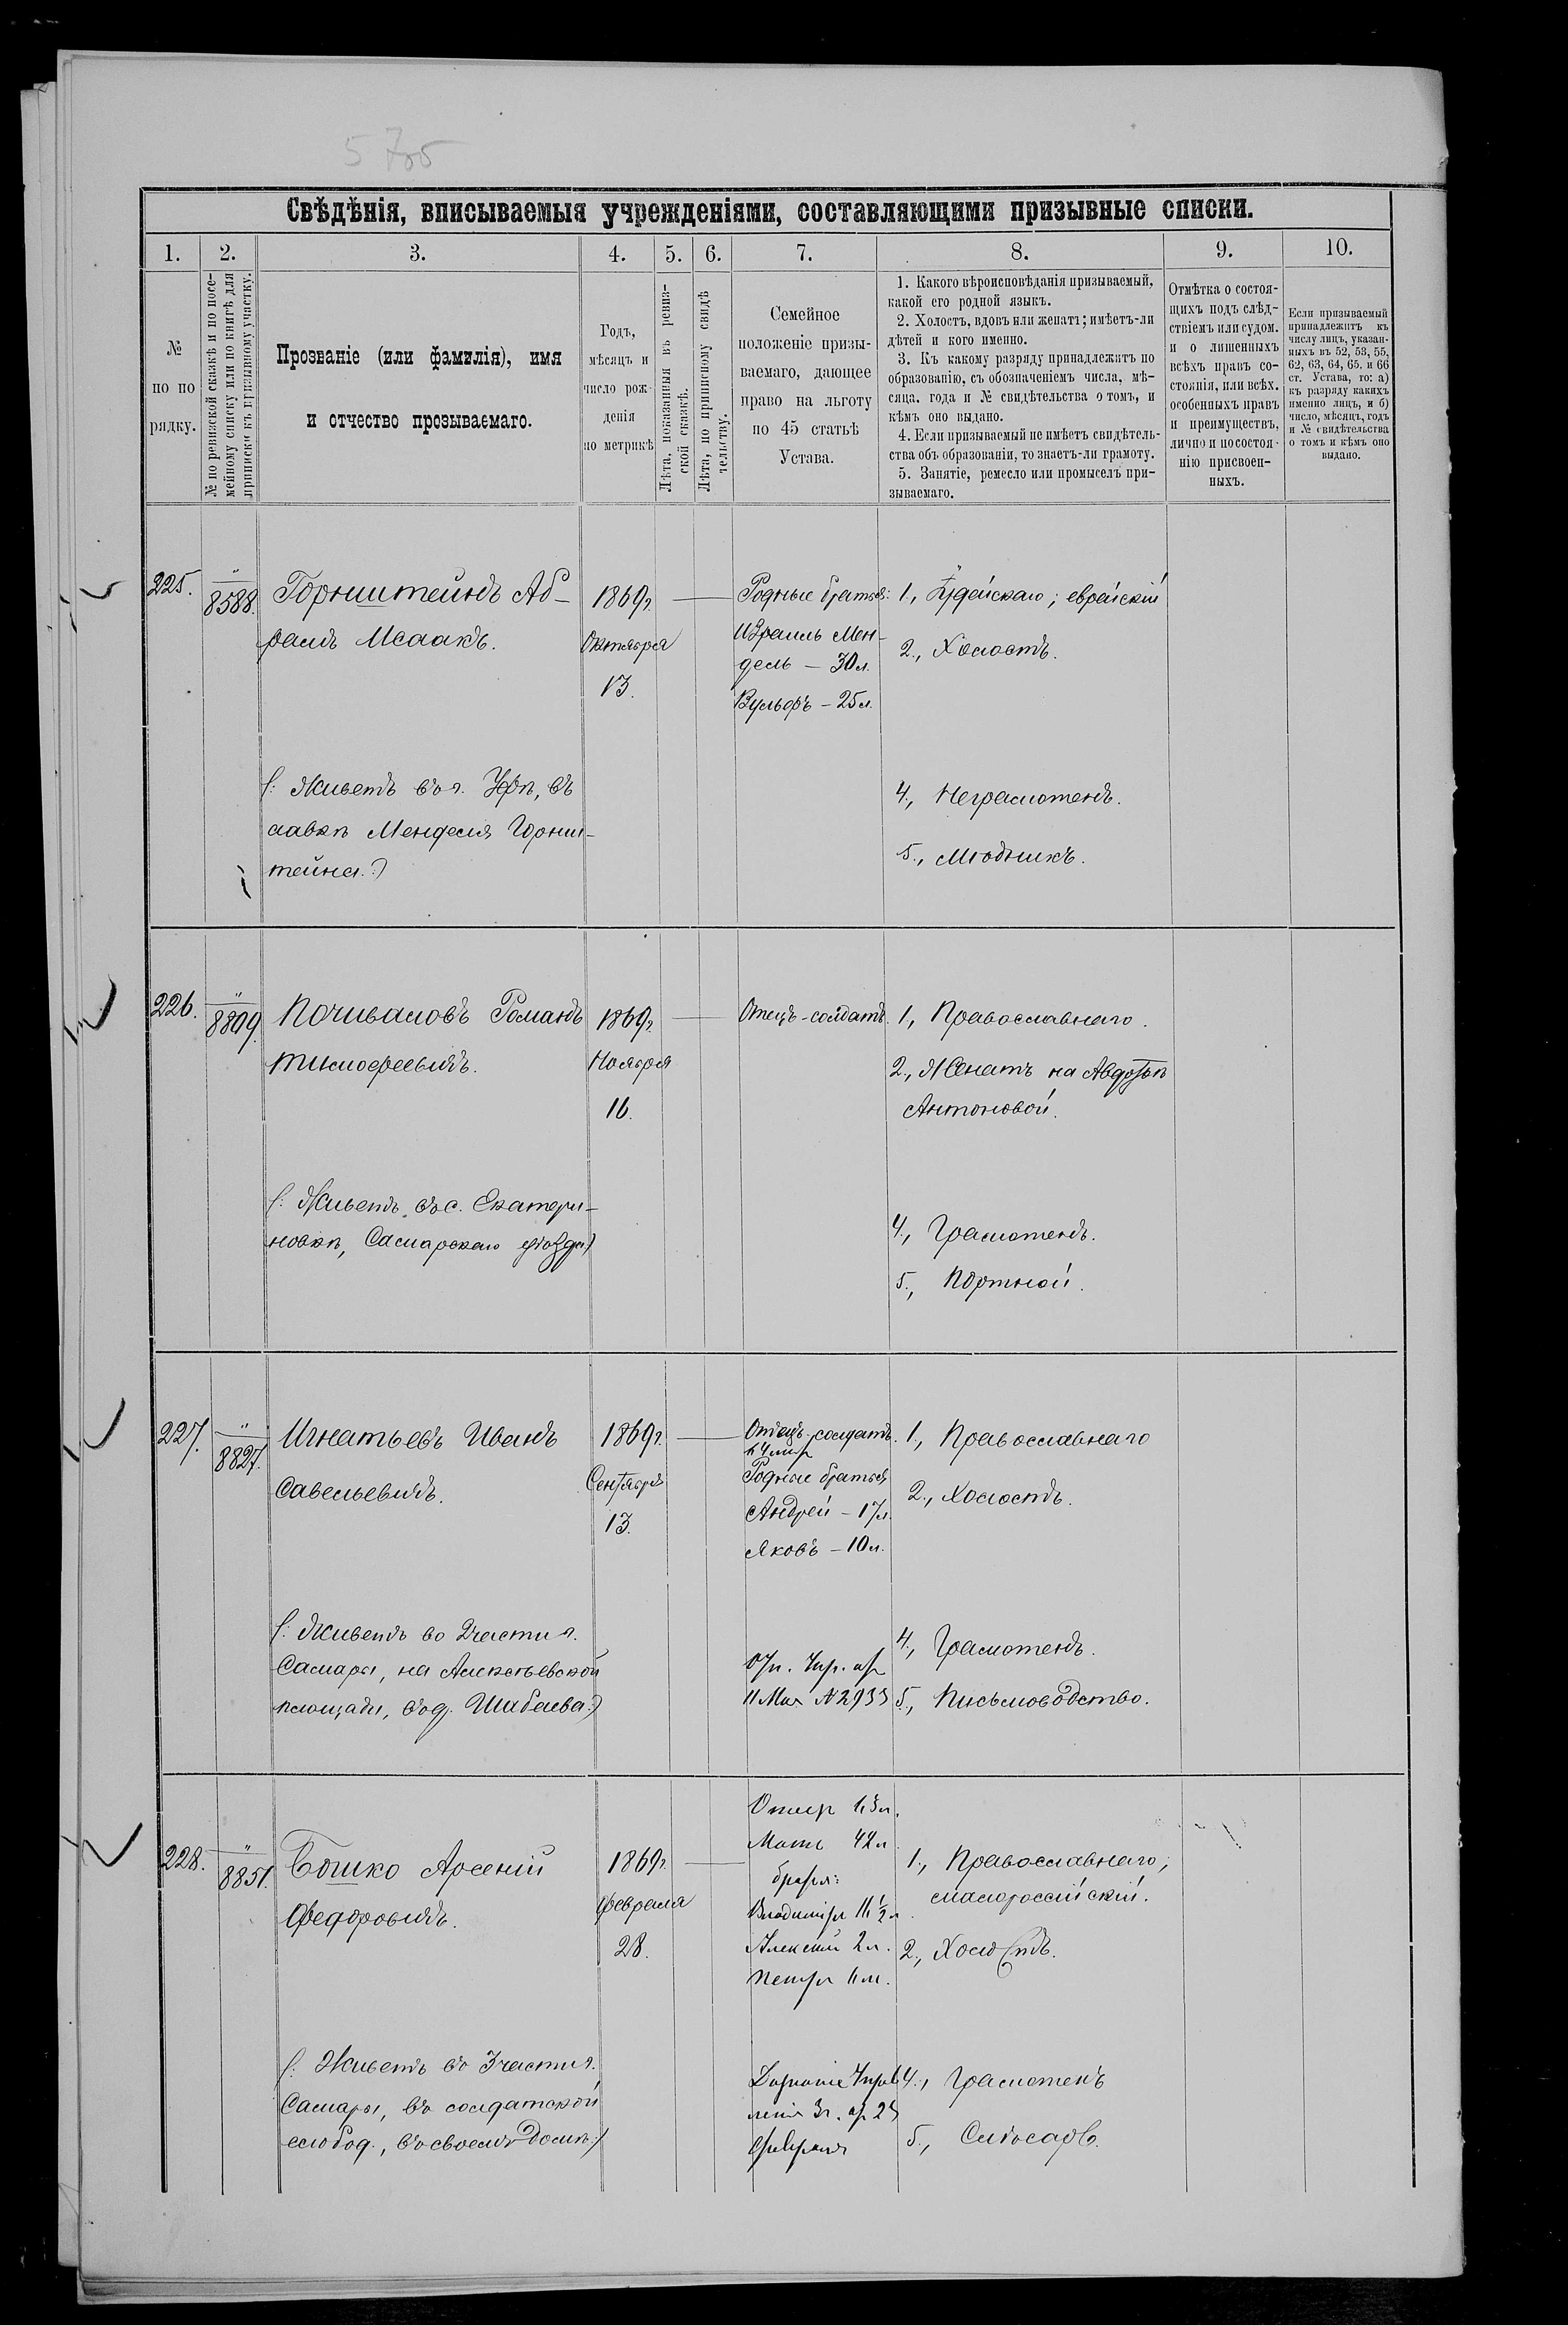 5705
Свѣдѣнія, вписываемыя учрежденіями, составляющими призывные списки.
1. 2. 3. 4. 5. 6. 7. 8. 9. 10.
№
по по
рядку.
№ по ревизской сказкѣ и по посе-
мейному списку или по книгѣ для
приписки къ призывному участку.
Прозваніе (или фамилія), имя
и отчество прозываемаго.
Годъ,
мѣсяцъ и
число рож-
денія
по метрикѣ
Лѣта, показанныя въ ревиз-
ской сказкѣ.
Лѣта, по приписному свидѣ
тельству.
Семейное
положеніе призы-
ваемаго, дающее
право на льготу
по 45 статьѣ
Устава.
1. Какого вѣроисповѣданія призываемый,
какой его родной языкъ.
2. Холостъ, вдовъ или женатъ; имѣетъ-ли
дѣтей и кого именно.
3. Къ какому разряду принадлежитъ по
образованію, съ обозначеніемъ числа, мѣ-
сяца, года и № свидѣтельства о томъ, и
кѣмъ оно выдано.
4. Если призываемый не имѣетъ свидѣтель-
ства объ образованіи, то знаетъ-ли грамоту.
5. Занятіе, ремесло или промыселъ при-
зываемаго.
Отмѣтка о состоя-
щихъ подъ слѣд-
ствіемъ или судом.
и о лишенныхъ
всѣхъ правъ со-
стоянія, или всѣх.
особенныхъ правъ
и преимуществъ,
лично и по состоя-
нію присвоен-
ныхъ.
Если призываемый
принадлежитъ къ
числу лицъ, указан-
ныхъ въ 52, 53, 55,
62, 63, 64, 65, и 66
ст. Устава, то: а)
къ разряду какихъ
именно лицъ, и б)
число, мѣсяцъ, годъ
и № свидѣтельства
о томъ и кѣмъ оно
выдано.
225.
"
8588.
Горнштейнъ Аб-
рамъ Исаакъ.
1869г.
Октября
13.
Родные братья:
Израиль Мен-
дель – 30 л.
Вульфъ – 25 л.
1., Іудейскаго; еврейскій
2., Холостъ.
(: Живетъ въ г. Уфѣ, въ
лавкѣ Менделя Горнш-
тейна:)
4., Неграмотенъ.
5., Мѣдникъ.
226.
"
8809.
Почиваловъ Романъ
Тимофеевичъ.
1869г.
Ноября
16.
Отецъ-солдатъ.
1., Православнаго.
2., Женатъ на Авдотьѣ
Антоновой.
(: Живетъ въ с. Екатери-
новкѣ, Самарскаго уѣзда:)
4., Грамотенъ.
5., Портной.
227.
"
8827.
Игнатьевъ Иванъ
Савельевичъ.
1869г.
Сентября
13.
Отецъ-солдатъ.
Родные братья
Андрей – 17 л.
Яковъ – 10 л.
1., Православнаго
2., Холостъ.
(: Живетъ во 2 части г.
Самары, на Алексѣевской
площади, въ д. Шибаева:)
11 Мая № 2933
4., Грамотенъ.
5., Письмоводство.
228.
"
8851.
Бошко Арсеній
Федоровичъ.
1869г.
Февраля
28.
Мать 42 л.
братья:
Владиміръ 11½ л
Алексѣй 2 л.
Петръ
1., Православнаго;
малороссійскій.
2., Холостъ.
(: Живетъ въ 3 части г.
Самары, въ солдатской
слобод., въ своемъ домѣ:)
Февраля
4., Грамотенъ
5., Слѣсарь.